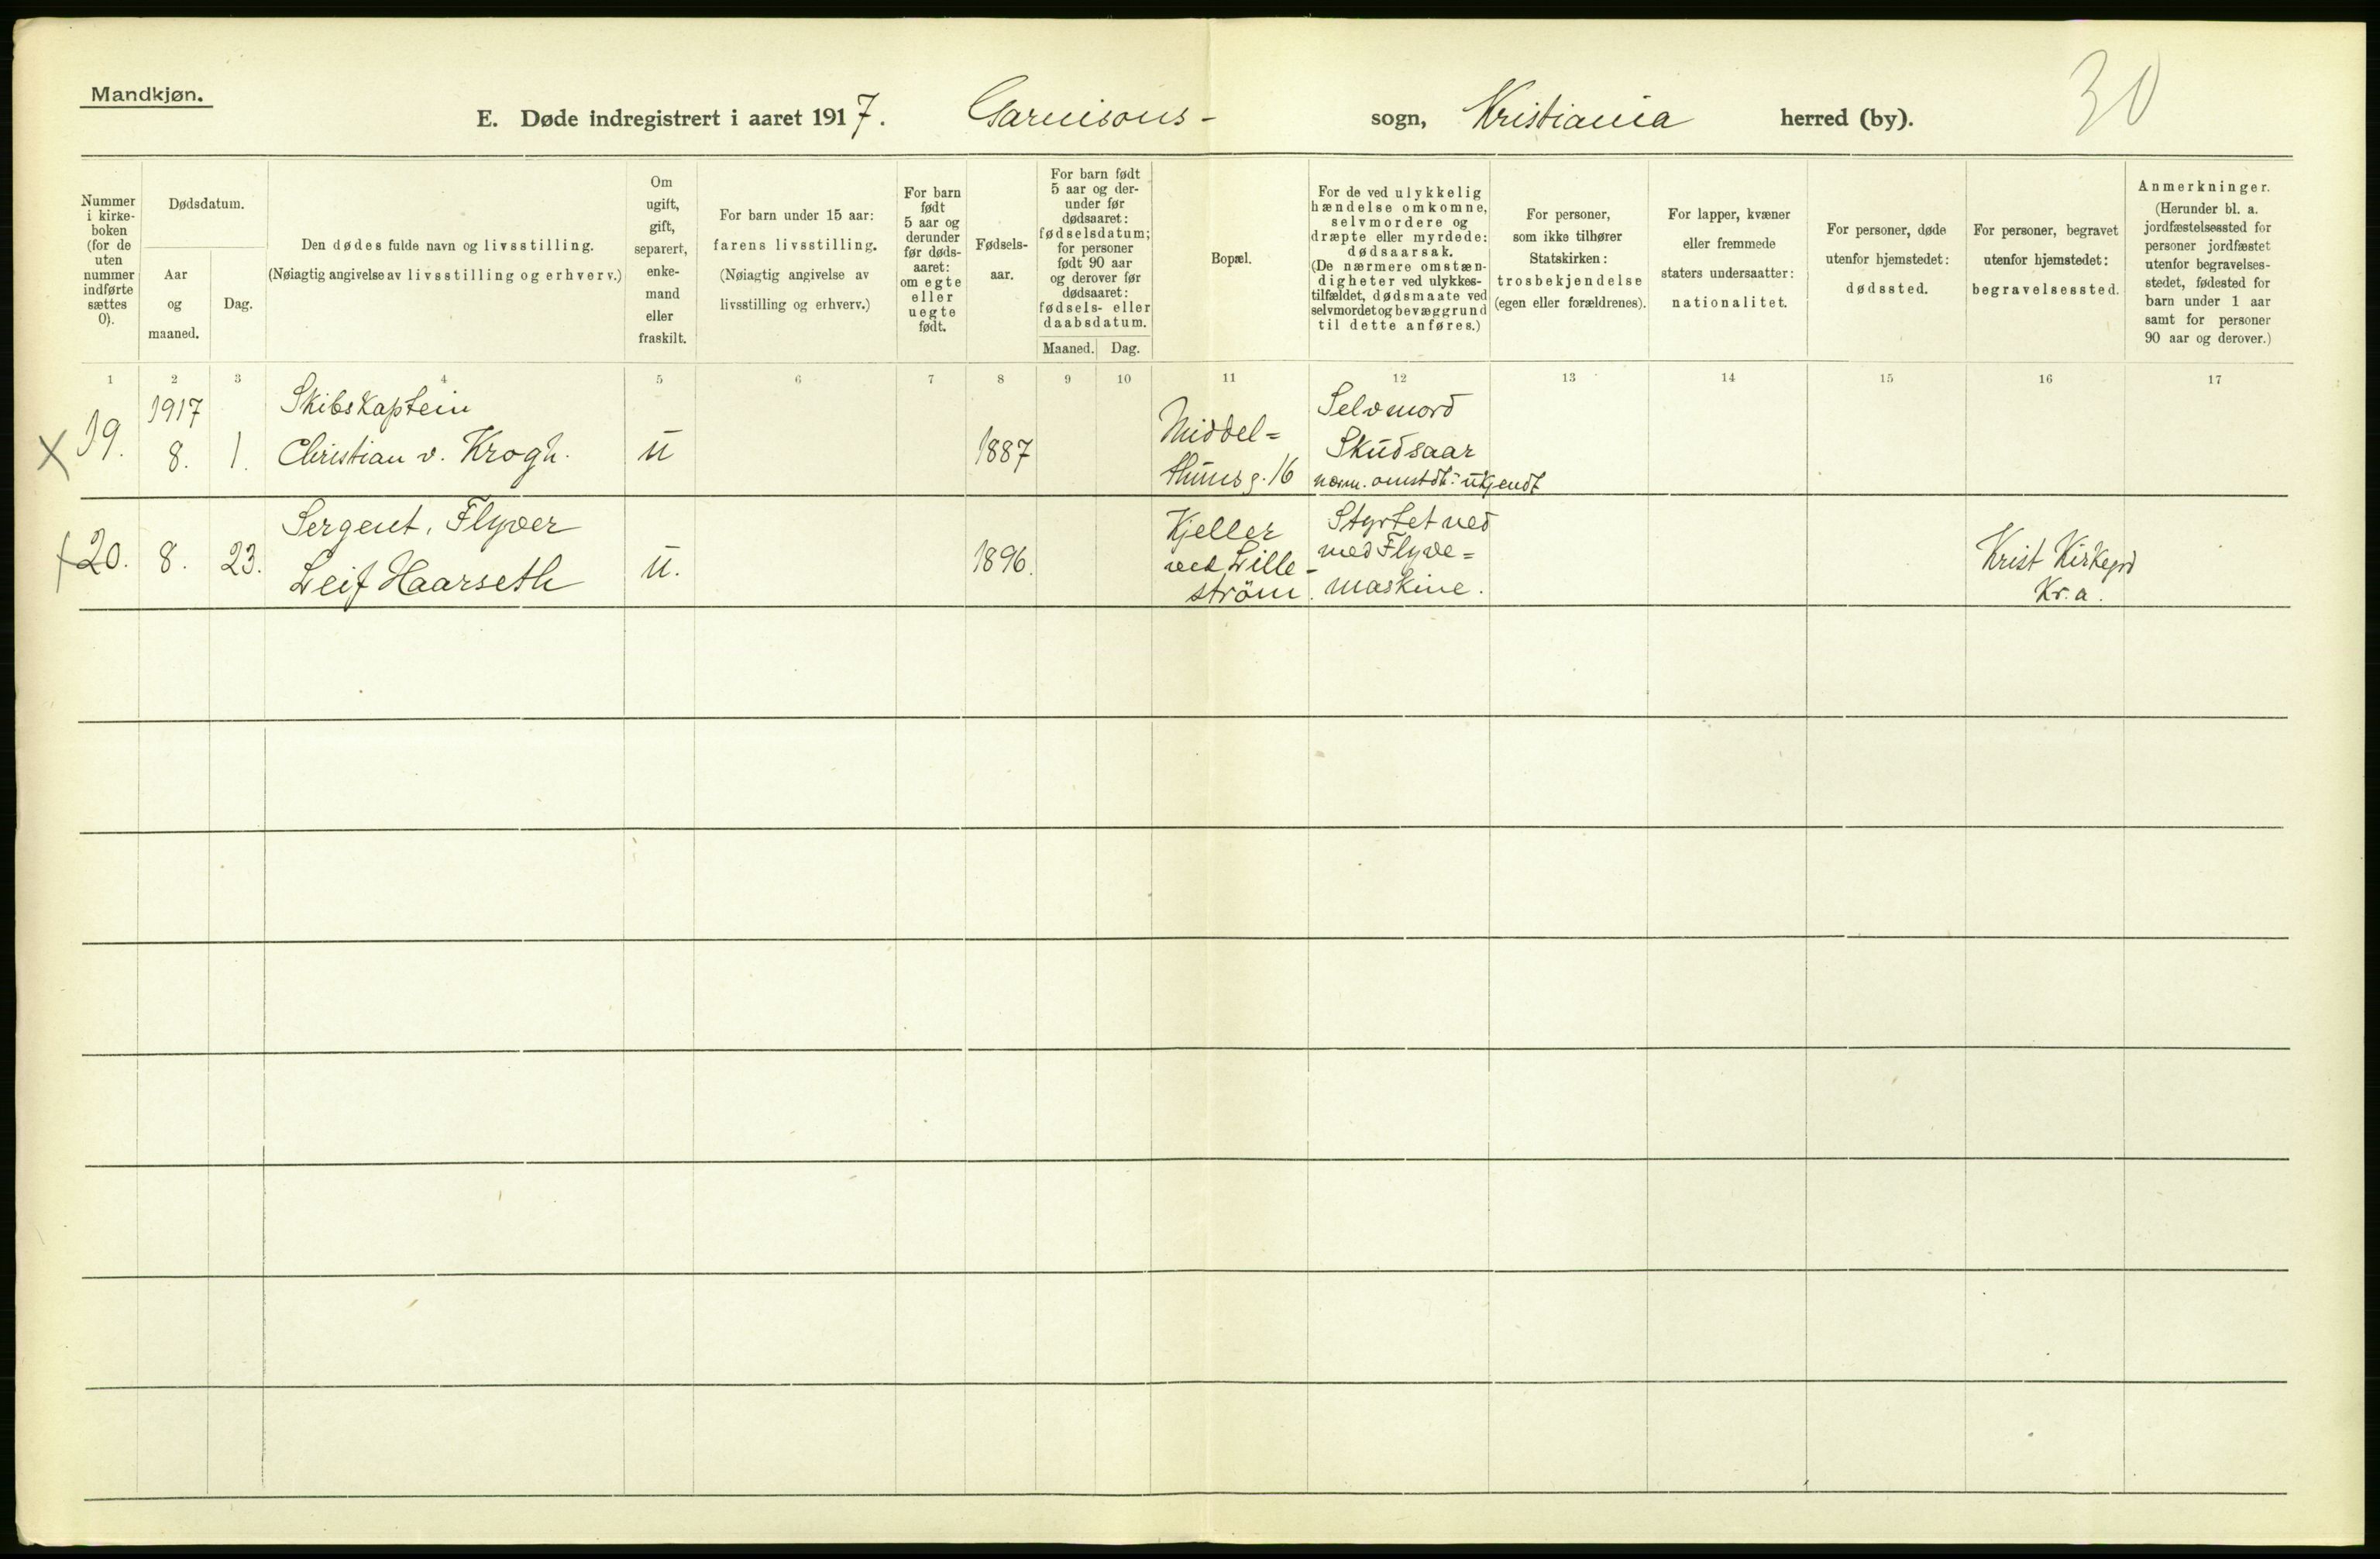 Mandkjøn.
E. Døde indregistrert i aaret 1917. Garnisons- sogn, Kristiania herred (by).
30
Nummer
i kirke-
boken
(for de
uten
nummer
indførte
sættes
0).
Dødsdatum.
Aar
og
maaned.
Dag.
Den dødes fulde navn og livsstilling.
(Nøiagtig angivelse av livsstilling og erhverv.)
Om
ugift,
gift,
separert,
enke-
mand
eller
fraskilt.
For barn under 15 aar:
farens livsstilling.
(Nøiagtig angivelse av
livsstilling og erhverv.)
For barn
født
5 aar og
derunder
før døds-
aaret:
om egte
eller
uegte
født.
Fødsels-
aar.
For barn født
5 aar og der-
under før
dødsaaret:
fødselsdatum;
for personer
født 90 aar
og derover før
dødsaaret:
fødsels- eller
daabsdatum.
Maaned. Dag.
Bopæl.
For de ved ulykkelig
hændelse omkomne,
selvmordere og
dræpte eller myrdede:
dødsaarsak.
(De nærmere omstæn-
digheter ved ulykkes-
tilfældet, dødsmaate ved
selvmordet og bevæggrund
til dette anføres.)
For personer,
som ikke tilhører
Statskirken:
trosbekjendelse
(egen eller forældrenes).
For lapper, kvæner
eller fremmede
staters undersaatter:
nationalitet.
For personer, døde
utenfor hjemstedet:
dødssted.
For personer, begravet
utenfor hjemstedet:
begravelsessted.
Anmerkninger.
(Herunder bl. a.
jordfæstelsessted for
personer jordfæstet
utenfor begravelses-
stedet, fødested for
barn under 1 aar
samt for personer
90 aar og derover.)
1 2 3 4 5 6 7 8 9 10 11 12 13 14 15 16 17
X 19.
1917
8. 1.
Skibskaptein
Christian v. Krogh.
u
1887
Middel=
thunsg. 16
Selvmord
Skudsaar
nærm. omstdh. ukjendt
20. 8. 23.
Sergent, Flyver
Leif Haarseth
u.
1896.
Kjeller
ved Lille-
ström.
Styrtet ned
med Flyve=
maskine.
Krist Kirkegrd
Kr.a.